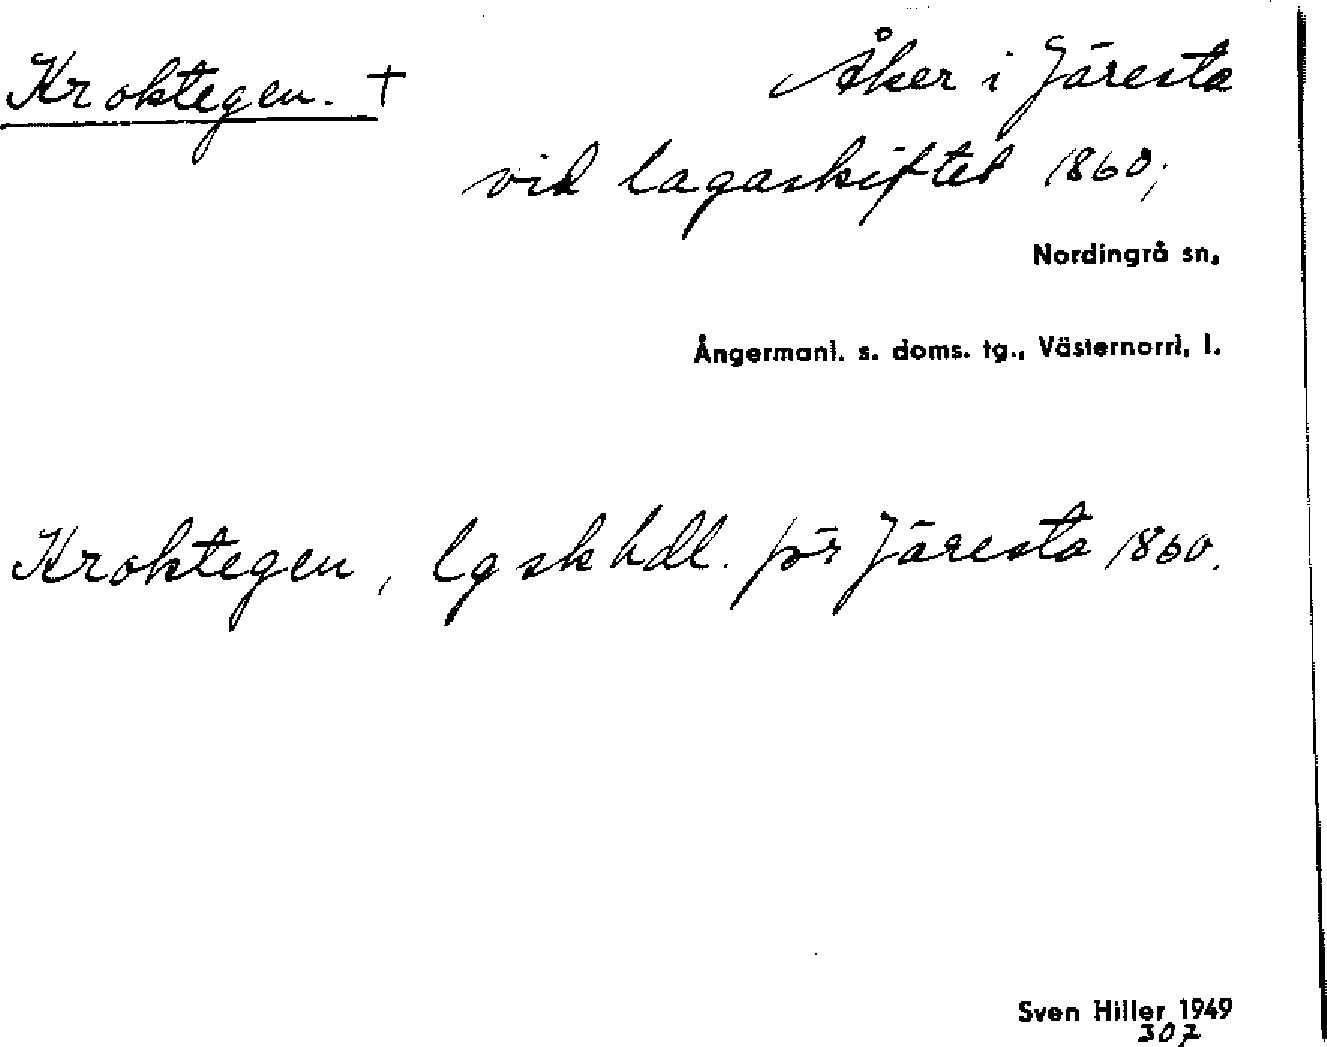 Kroktegen. † Åker i Järesta
vid lagaskiftet 1860;
Nordingrå sn,
Ångermanl. s. doms. tg., Västernorrl. l.
Kroktegen, lgskhdl. för Järesta 1860.
Sven Hiller 1949
307